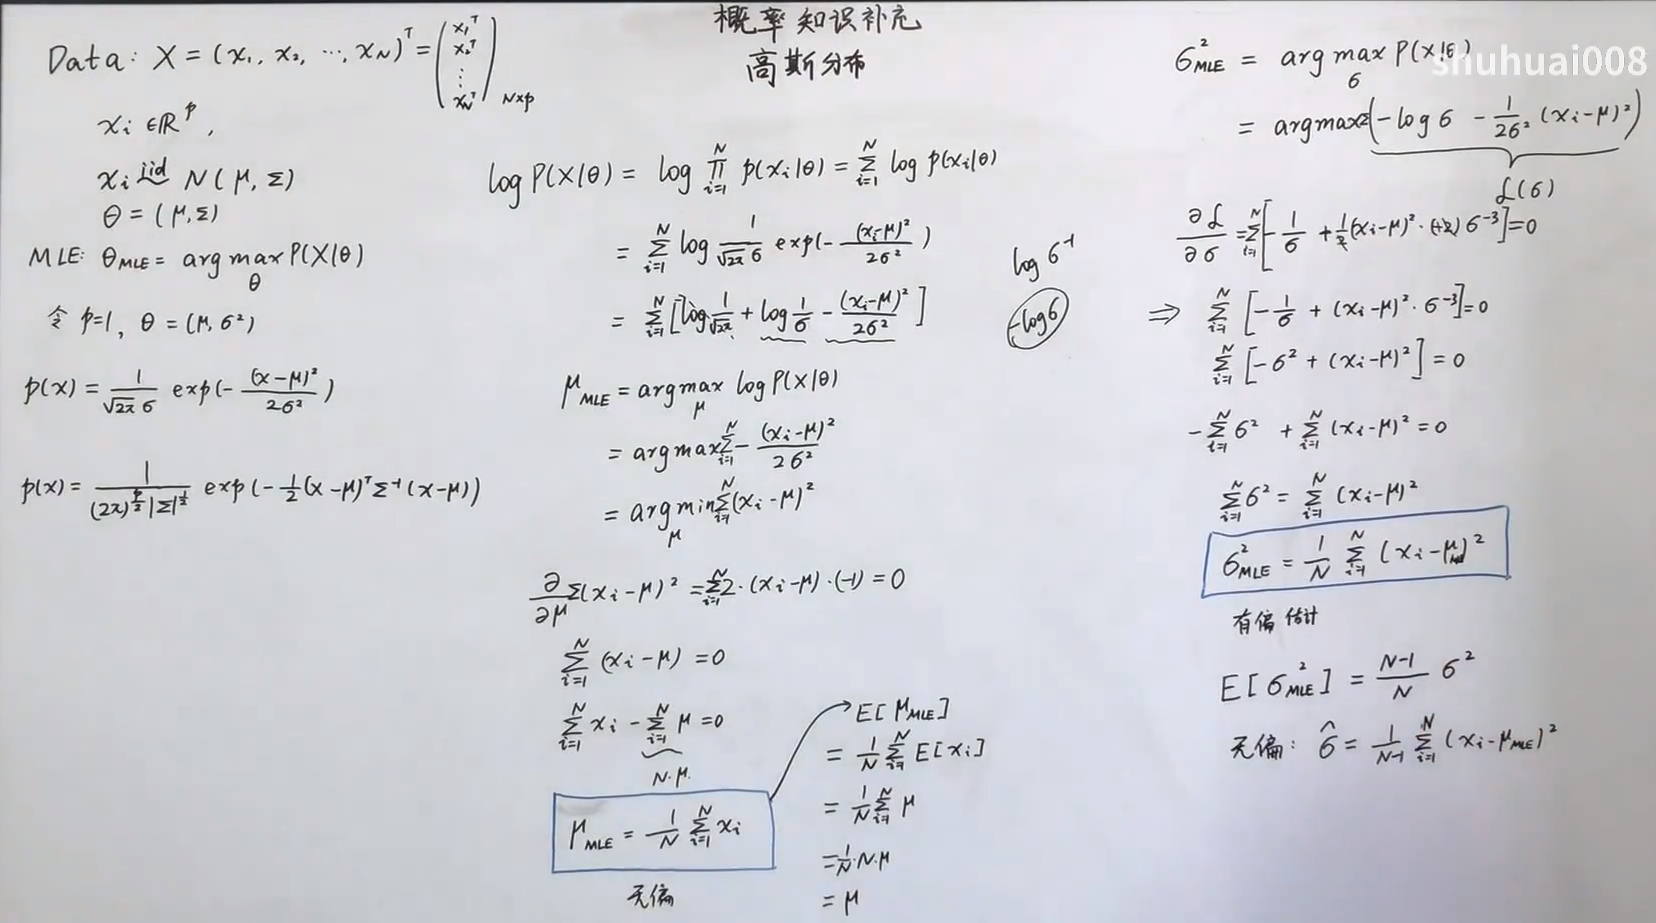 概率知识补充
高斯分布
shuhuai008
Data: X = (x₁, x₂, ⋯, x_N)ᵀ = (x₁ᵀ x₂ᵀ ⋮ x_Nᵀ)_{N×p}
xᵢ ∈ ℝᵖ,
xᵢ iid~ N(μ, Σ)
θ = (μ, Σ)
MLE: θ_MLE = arg max_θ P(X|θ)
令 p=1, θ = (μ, σ²)
p(x) = 1/(√2π σ) exp(- (x-μ)²/2σ²)
p(x) = 1/((2π)^{p/2} |Σ|^{1/2}) exp(-1/2 (x-μ)ᵀ Σ⁻¹ (x-μ))
log P(X|θ) = log ∏_{i=1}^N p(xᵢ|θ) = Σ_{i=1}^N log p(xᵢ|θ)
= Σ_{i=1}^N log 1/(√2π σ) exp(- (xᵢ-μ)²/2σ²)
= Σ_{i=1}^N [log 1/√2π + log 1/σ - (xᵢ-μ)²/2σ²]
log σ⁻¹
-log σ
μ_MLE = arg max_μ log P(X|θ)
= arg max Σ_{i=1}^N - (xᵢ-μ)²/2σ²
= arg min_μ Σ_{i=1}^N (xᵢ-μ)²
∂/∂μ Σ(xᵢ-μ)² = Σ_{i=1}^N 2·(xᵢ-μ)·(-1) = 0
Σ_{i=1}^N (xᵢ-μ) = 0
Σ_{i=1}^N xᵢ - Σ_{i=1}^N μ = 0
N·μ.
μ_MLE = 1/N Σ_{i=1}^N xᵢ
无偏
E[μ_MLE]
= 1/N Σ_{i=1}^N E[xᵢ]
= 1/N Σ_{i=1}^N μ
= 1/N·N·μ
= μ
σ²_MLE = arg max_σ P(X|θ)
= arg max Σ(-log σ - 1/2σ² (xᵢ-μ)²)
ℒ(σ)
∂ℒ/∂σ = Σ_{i=1}^N [-1/σ + 1/2 (xᵢ-μ)²·(+2) σ⁻³] = 0
⇒ Σ_{i=1}^N [-1/σ + (xᵢ-μ)²·σ⁻³] = 0
Σ_{i=1}^N [-σ² + (xᵢ-μ)²] = 0
-Σ_{i=1}^N σ² + Σ_{i=1}^N (xᵢ-μ)² = 0
Σ_{i=1}^N σ² = Σ_{i=1}^N (xᵢ-μ)²
σ²_MLE = 1/N Σ_{i=1}^N (xᵢ-μ)²
有偏估计
E[σ²_MLE] = (N-1)/N σ²
无偏: σ̂ = 1/(N-1) Σ_{i=1}^N (xᵢ-μ_MLE)²